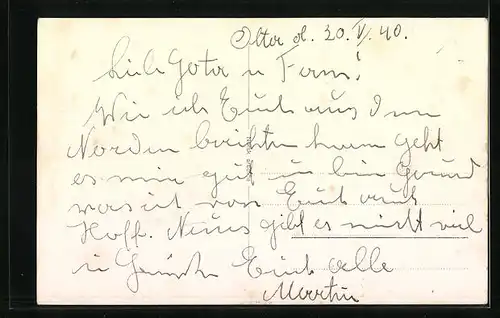 Olta d. 20. V. 40.
Lieb Gota u Fam!
Wie ich Euch aus dem
Norden berichten kann geht
es mir gut u bin Gesund
was ich von Euch auch
Hoff. Neues gibt es nicht viel
u Grüsse Euch alle
Martin